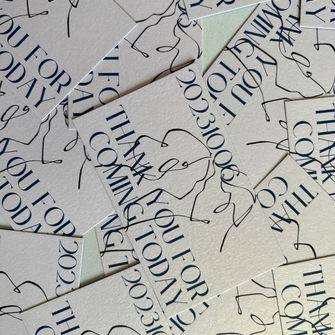 YOU FOR
TODAY
THANK YOU FOR
COMING TODAY
THANK YOU F
COMING TO
20231006
THANK YOU FOR
COMING TODAY
20231006
YOU FOR
TODAY
2023
THAN
CO
THANK
COMING
THANK
COMING